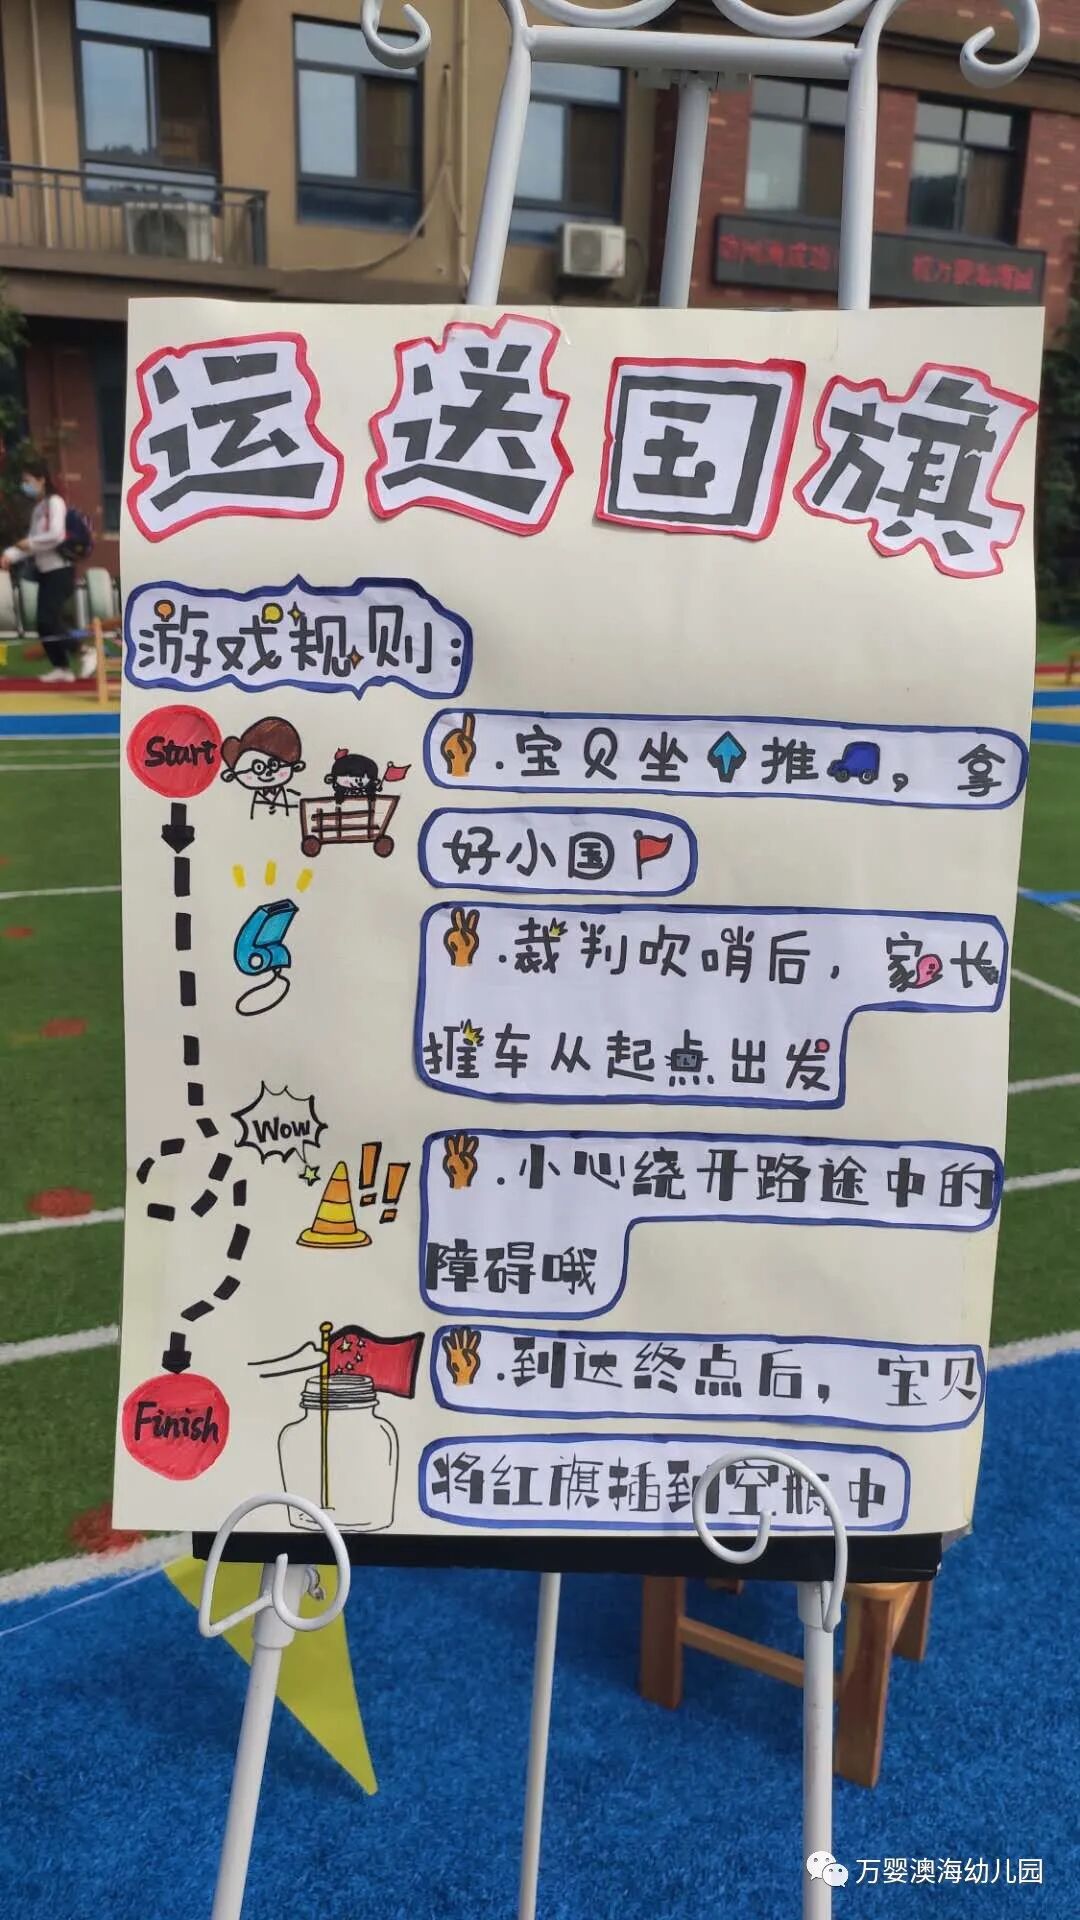 运送国旗
游戏规则:
Start
.宝贝坐推，拿
好小国
.裁判吹哨后，家长
推车从起点出发
Wow
.小心绕开路途中的
障碍哦
.到达终点后，宝贝
Finish
将红旗插到空瓶中
万婴澳海幼儿园